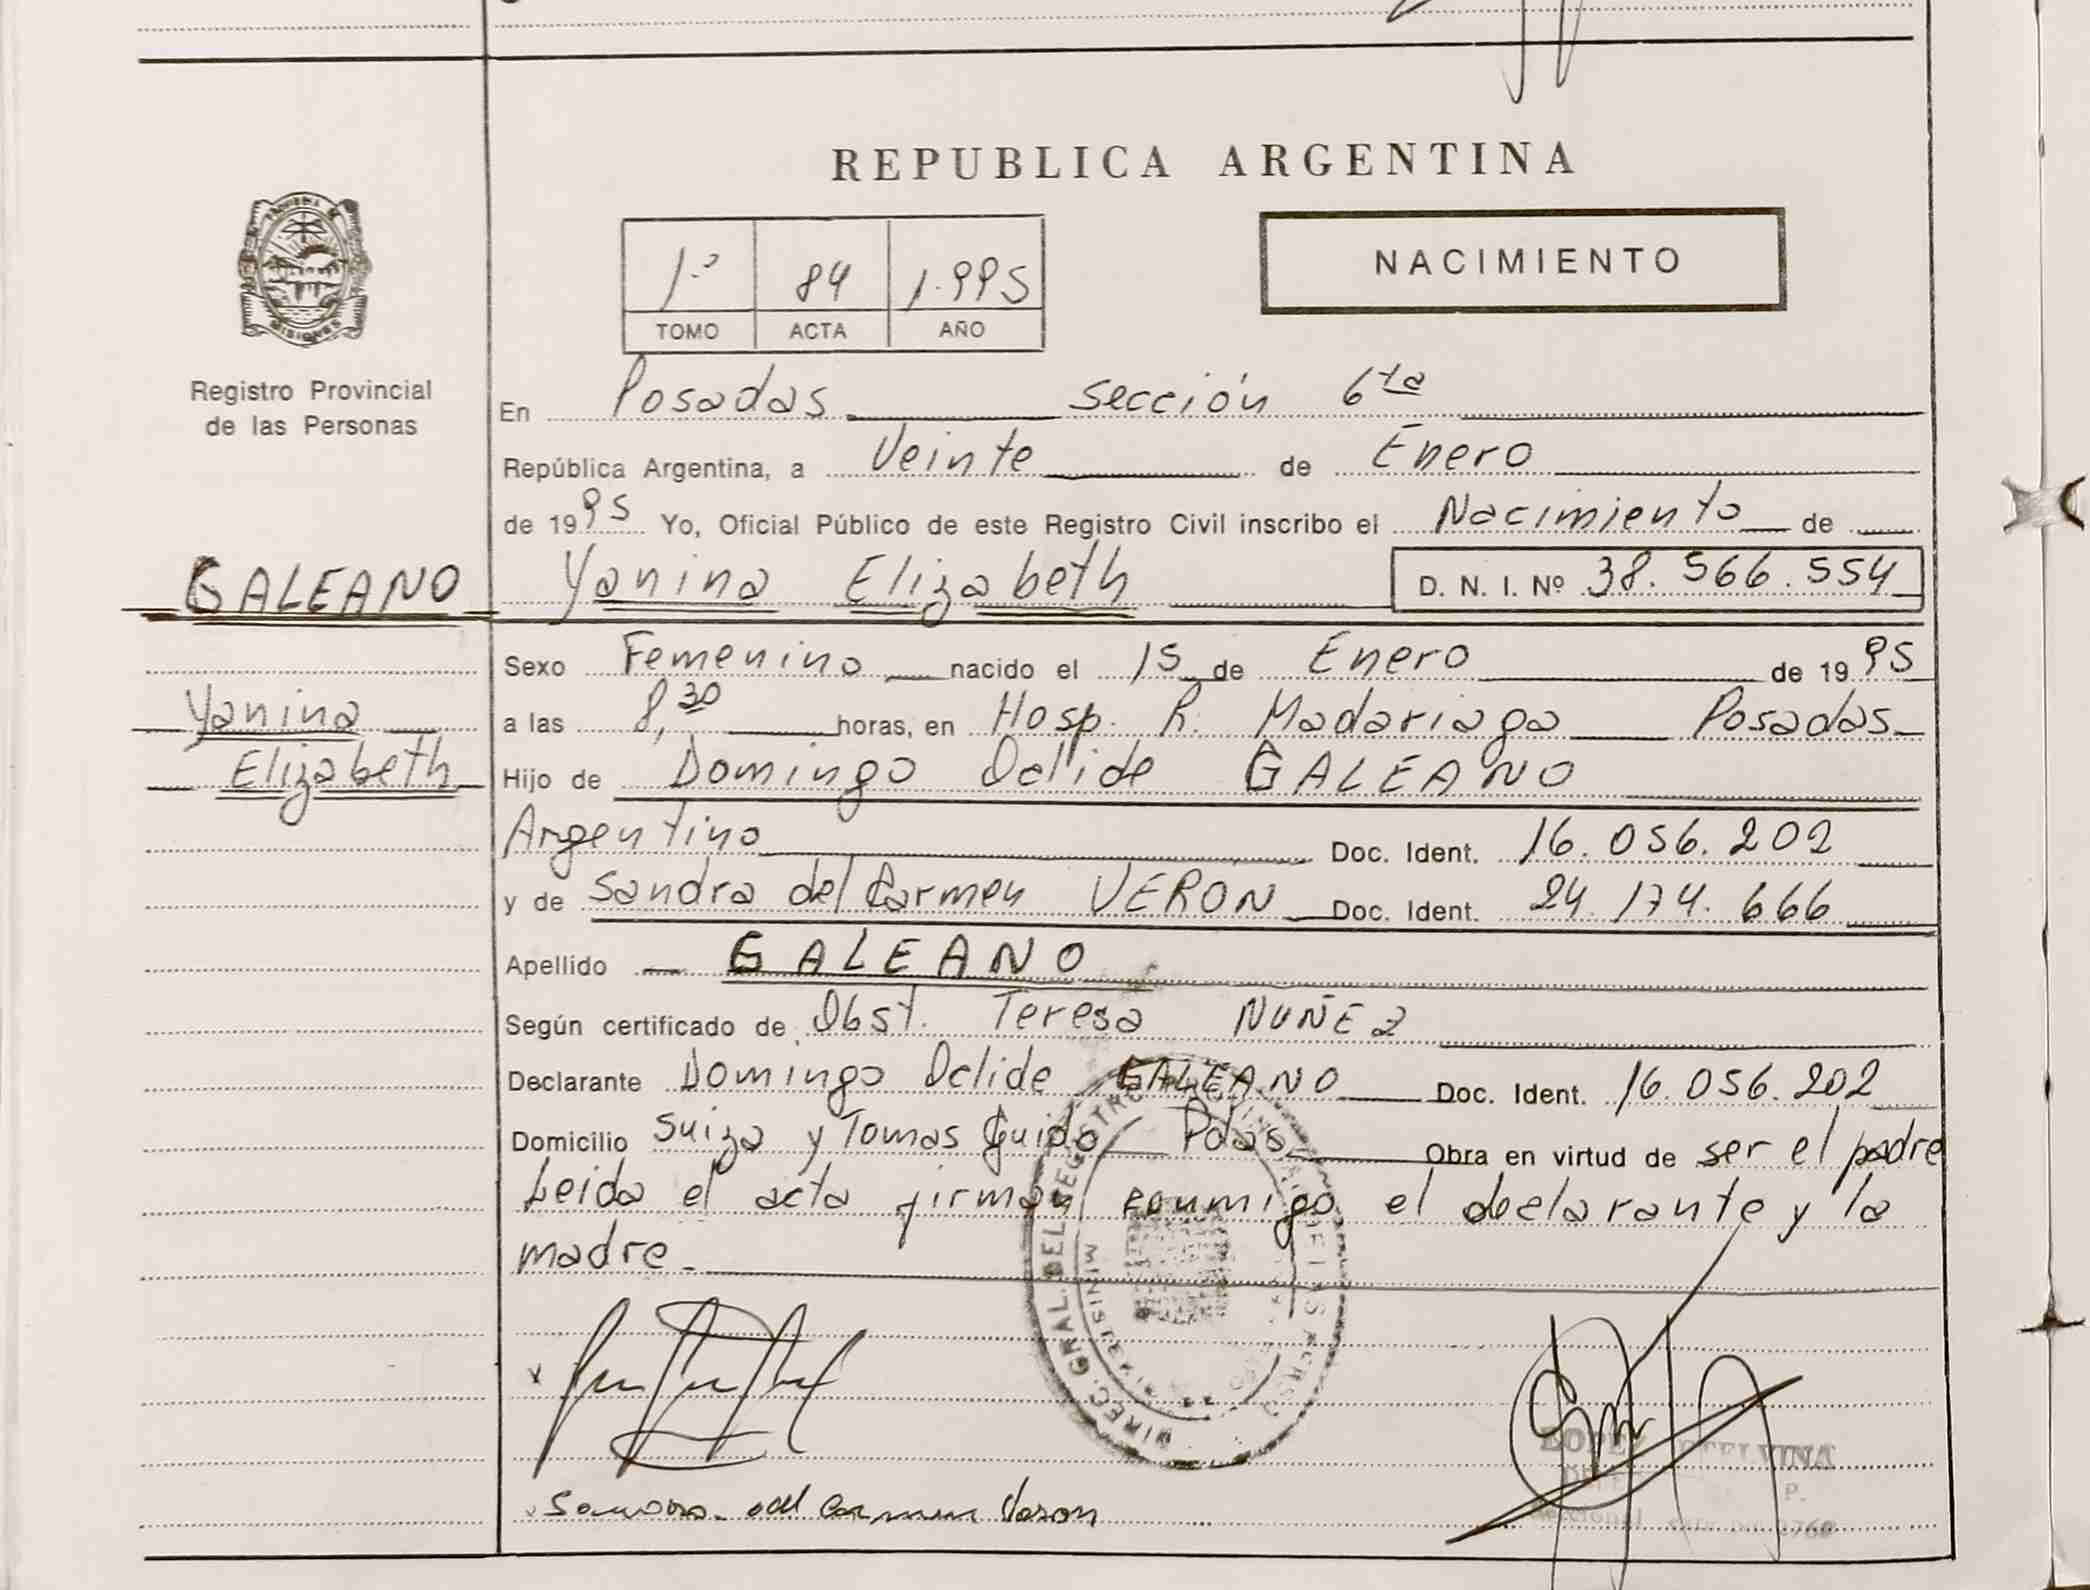 REPUBLICA ARGENTINA
NACIMIENTO
1º 84 1.995
TOMO ACTA AÑO
MISIONES
Registro Provincial
de las Personas
En Posadas sección 6ta
República Argentina, a Veinte de Enero
de 1995 Yo, Oficial Público de este Registro Civil inscribo el Nacimiento de
GALEANO Yanina Elizabeth D. N. I. Nº 38.566.554
Sexo Femenino nacido el 15 de Enero de 1995
Yanina
a las 8,30 horas, en Hosp. R. Madariaga Posadas
Elizabeth
Hijo de Domingo Delide GALEANO
Argentino Doc. Ident. 16.056.202
y de Sandra del Carmen VERON Doc. Ident. 24.174.666
Apellido GALEANO
Según certificado de Obst. Teresa NUÑEZ
Declarante Domingo Delide GALEANO Doc. Ident. 16.056.202
Domicilio Suiza y Tomas Guido Pdas Obra en virtud de ser el padre
Leida el acta firman conmigo el declarante y la
madre.
DIREC. GRAL. DEL REGISTRO DE LAS PERSO
MINISTE
Sandra del Carmen Veron
LOPEZ ETELVINA
P.
Seccional